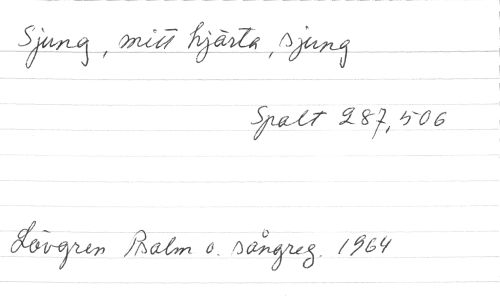 Sjung, mitt hjärta, sjung
Spalt 287, 506
Lövgren Psalm o. sångreg. 1964